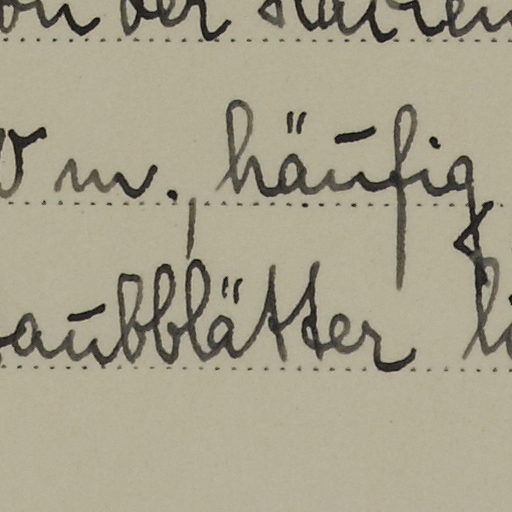 von der
0 m., häufig
Laubblätter